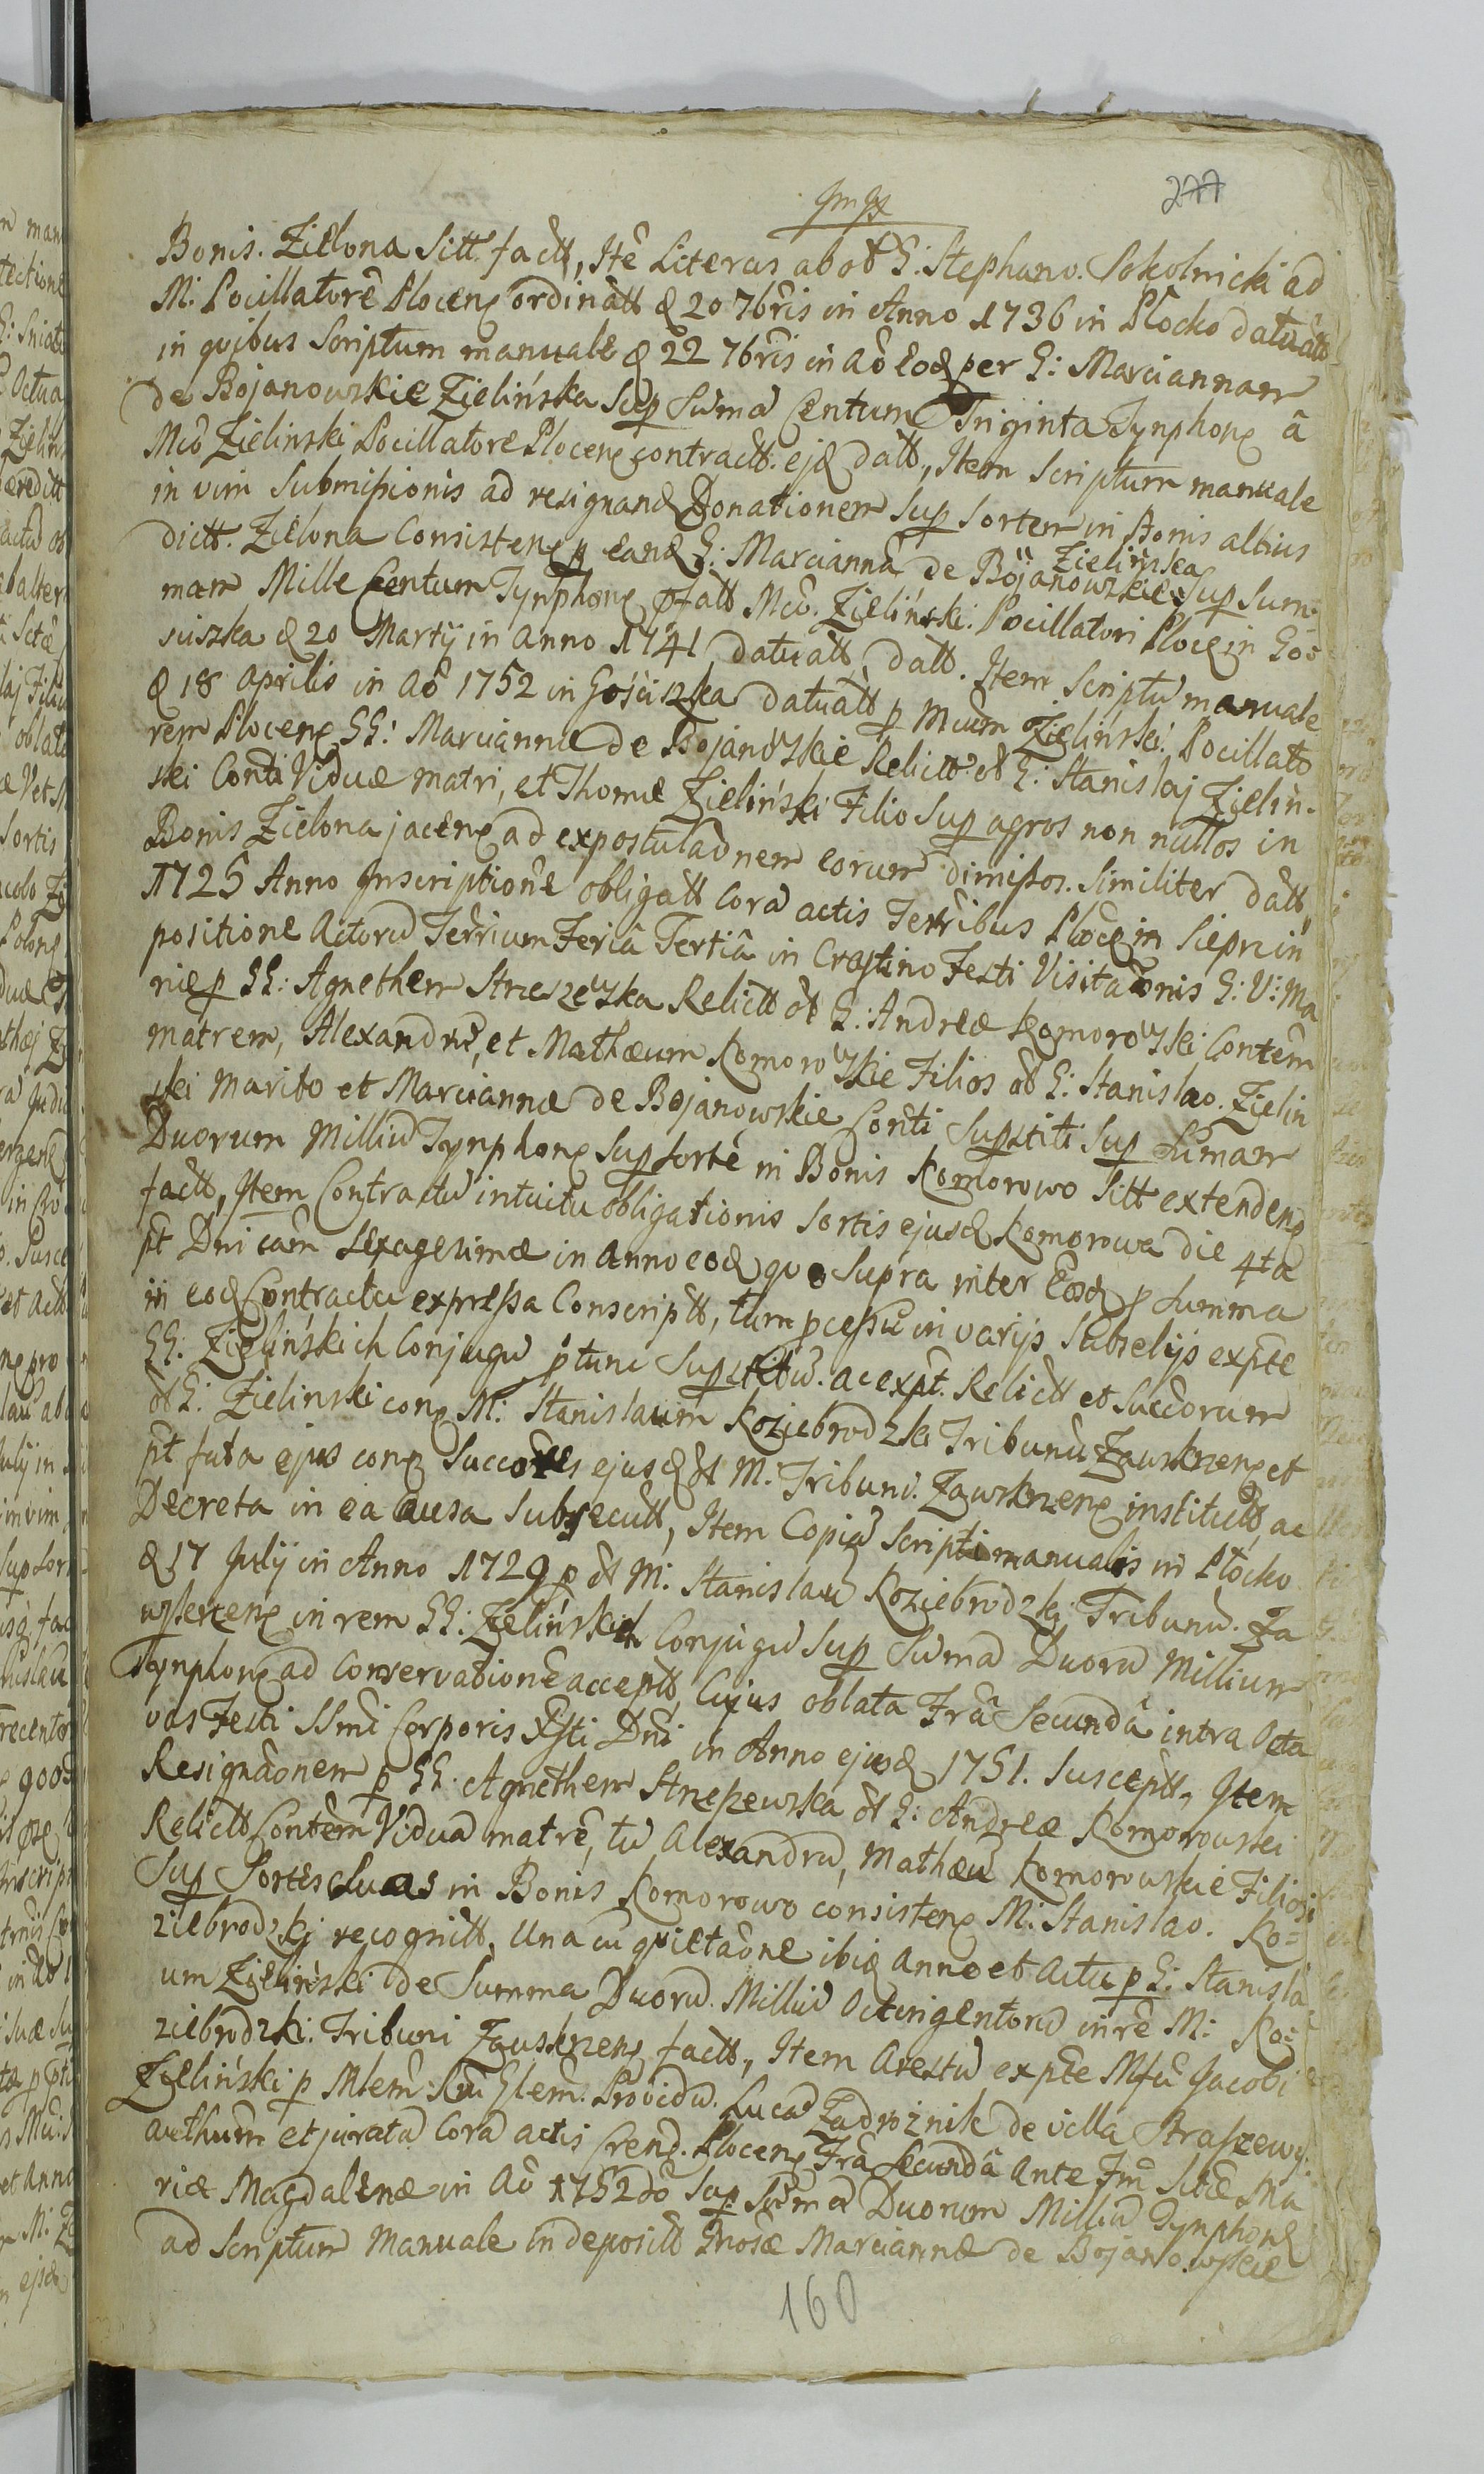 277
Bonis. Zielona Sitt. factt, Itē Literas ab oł G: Stephano. Sokolnicki ad
M: Pocillatorē Plocen ordinatt d 20 7bris in Anno 1736 in Płocko datuatt
in quibus Scriptum manuale d 22 7bris in Aō eod per G: Mariannam
de Bojanowskie Zielińska Sup Sūma Centum Triginta Tynphon â
Mcō Zielinski Pocillatore Plocen contractt. ejd datt, Item Scriptum manuale
in vim Submissionis ad resignand Donationem Sup Sortem in Bonis altius
dictt. Zielona Consisten p eand G: Mariannā de Bojanowskie Zielińska Sup Sum-
mam Mille Centum Tynphon pfatt Mcō. Zieliński. Pocillatori Plocen in Goś-
ciszka d 20 Martij in Anno 1741 datuatt, datt. Item Scriptū manuale
d 18 Aprilis in Aō 1752 in Gościszka datuatt p Mcum Zieliński. Pocillato
rem Plocen GG: Mariannæ de Bojanowskie Relictæ oł G: Stanislaj Zieliń-
ski Conti Viduæ Matri, et Thomæ Zieliński Filio Sup agros non nullos in
Bonis Zielona jacen ad expostulaōnem eorum dimissos. Similiter datt,
1725 Anno Inscriptione obligatt Corā actis Terribus Plocen in Sieprc in
positione Actorū Terrium Feriâ Tertiâ in Crastino Festi Visitaōnis G: V: Ma
riæ p GG: Agnethem Strzeszewska Relictt oł G: Andreæ Komorowski Contēm
matrem, Alexandrū, et Mathæum Komorowskie Filios oł G: Stanislao. Zieliń
ski Marito et Mariannæ de Bojanowskie Conti Supstiti Sup Sūmam
Duorum Milliū Tynphon Sup Sorte in Bonis Komorowo Sitt extenden
factt, Item Contractū intuitu obligationis Sortis ejusd Komorowa die 4ta
pt Dnicam Sexagesimæ in Anno eod quo Supra inter Eosd p Summa
in eod Contractu expressa Conscriptt, tum pcessū in varijs Subselijs expte
GG: Zielińskich Conjugū ptunc Supstitū. ac expt. Relictt et Succorum
oł G: Zielinski con M: Stanislaum Koziebrodzki Tribunū Zawskrzen et
pt futa ejus con Succores ejusd oł M: Tribuni. Zawskrzen institutt, ac
Decreta in ea causa Subsecutt, Item Copiā Scripti manualis in Płocko
d 17 Julij in Anno 1729 p oł M: Stanislaū Koziebrodzki Tribunū. Za
wskrzen in rem GG: Zielińskich Conjugū Sup Sūma Duorū Millium
Tynphon ad Conservationē acceptt, Cujus oblata Frâ Secundâ intra Octa
vas Festi SSmi Corporis Xsti Dni in Anno ejusd 1751. Susceptt, Item
Resignaōnem p GG: Agnethem Strzeszewska oł G: Andreæ Komorowski
Relictt Contēm Viduā matrē, tū Alexandrū, Mathæū Komorowskie Filios
Sup Sortes Suas in Bonis Komorowo consisten M: Stanislao. Ko=
ziebrodzki recognitt. Una cū quietaōne ibid Anno et Actu p G: Stanisla
um Zieliński de Summa Duorū. Milliū Octingentorū in rē M: Ko=
ziebrodzki. Tribuni Zawskrzen factt, Item Arestū expte Mfci Jacobi
Zieliński p Providū. Lucā Zadrożnik de villa Straszewy
authum et juratū Corā actis Cren. Plocen Frâ Secundâ Ante Fm Sctæ Ma
riæ Magdalenæ in Aō 1752do Sup Sūma Duorum Milliū Tynphon
ad Scriptum Manuale in deposito Gnosæ Mariannæ de Bojanowskie
160